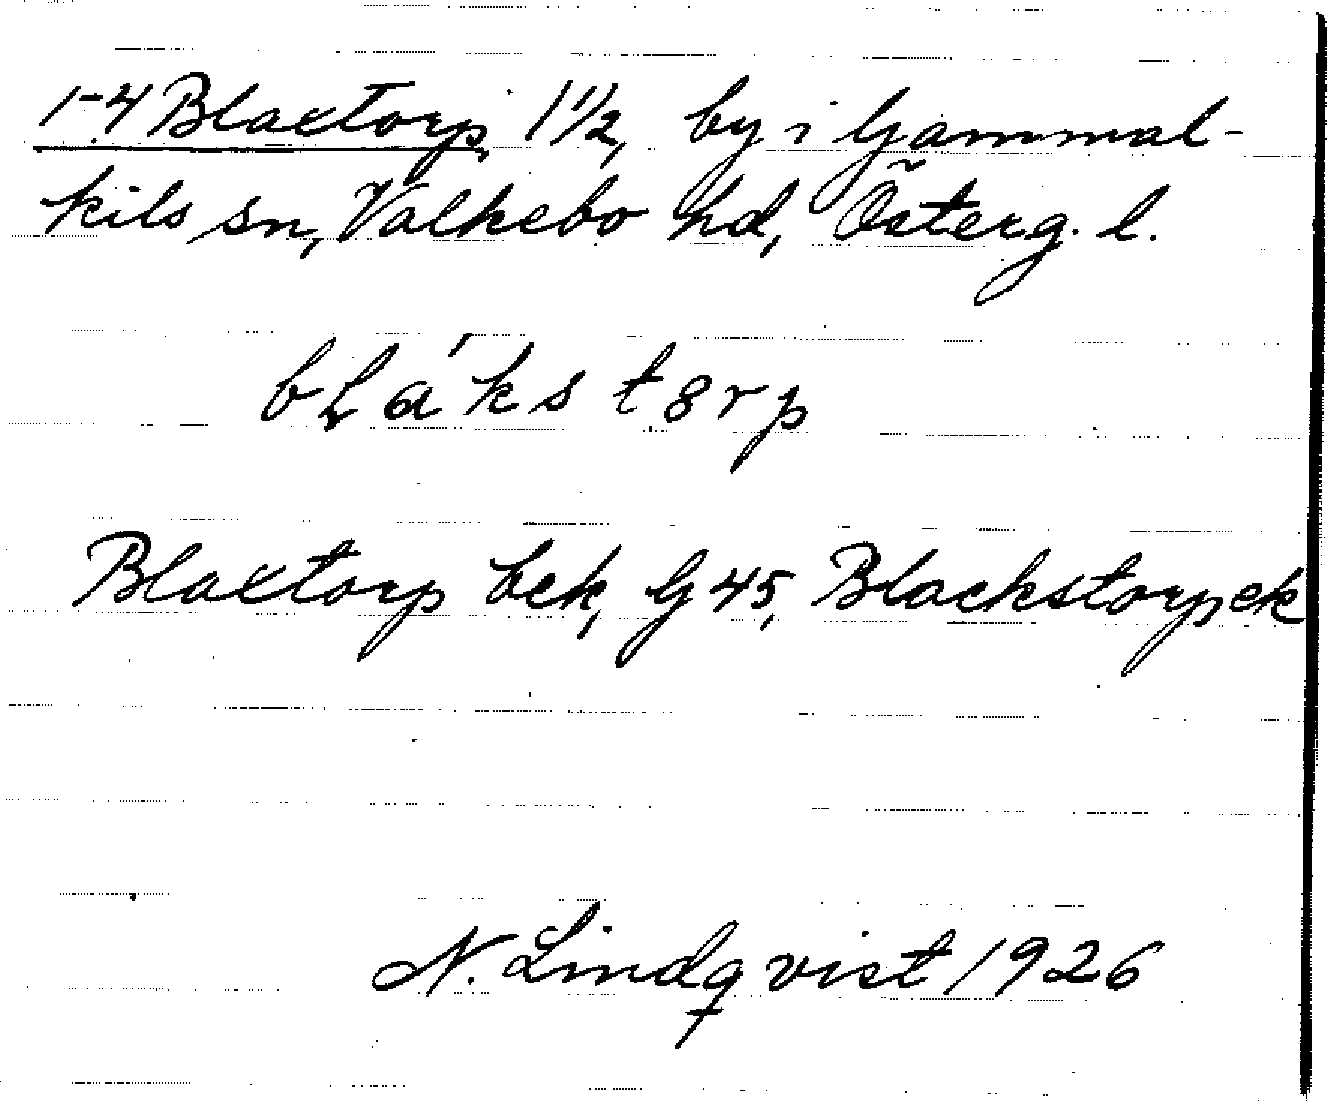 1-4 Blaxtorp, 1 1/2, by i Gammal-
kils sn, Valkebo hd, Österg. l.
bLáks t8rp
Blaxtorp bek, G 45, Blackstorp ek
N. Lindqvist 1926